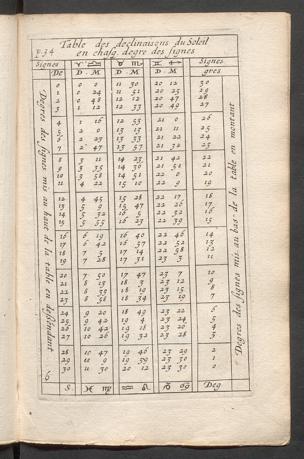 p.34
Table des declinaisons du Soleil
en chasq. degre des signes
Signes ♈ ♎ ♉ ♏ ♊ ♐ Signes
De D M D M D M gres
0 0 0 11 30 20 12 30
1 0 24 11 51 20 25 29
2 0 48 12 12 20 37 28
3 1 12 12 33 20 49 27
4 1 36 12 53 21 0 26
5 2 0 13 13 21 11 25
6 2 23 13 33 21 22 24
7 2 47 13 53 21 32 23
8 3 11 14 13 21 42 22
9 3 35 14 32 21 51 21
10 3 58 14 51 22 0 20
11 4 22 15 10 22 9 19
12 4 45 15 28 22 17 18
13 5 9 15 47 22 25 17
14 5 32 16 5 22 32 16
15 5 55 16 23 22 39 15
16 6 19 16 40 22 46 14
17 6 42 16 57 22 52 13
18 7 5 17 14 22 58 12
19 7 28 17 31 23 3 11
20 7 50 17 47 23 7 10
21 8 13 18 3 23 12 9
22 8 35 18 19 23 15 8
23 8 58 18 34 23 19 7
24 9 20 18 49 23 22 6
25 9 42 19 4 23 24 5
26 10 4 19 18 23 26 4
27 10 26 19 32 23 28 3
28 10 47 19 46 23 29 2
29 11 9 19 59 23 30 1
30 11 30 20 12 23 30 0
S ♓ ♍ ♒ ♌ ♑ ♋ Deg
Degres des signes mis au haut de la table en descendant
Degres des signes mis au bas de la table en montant